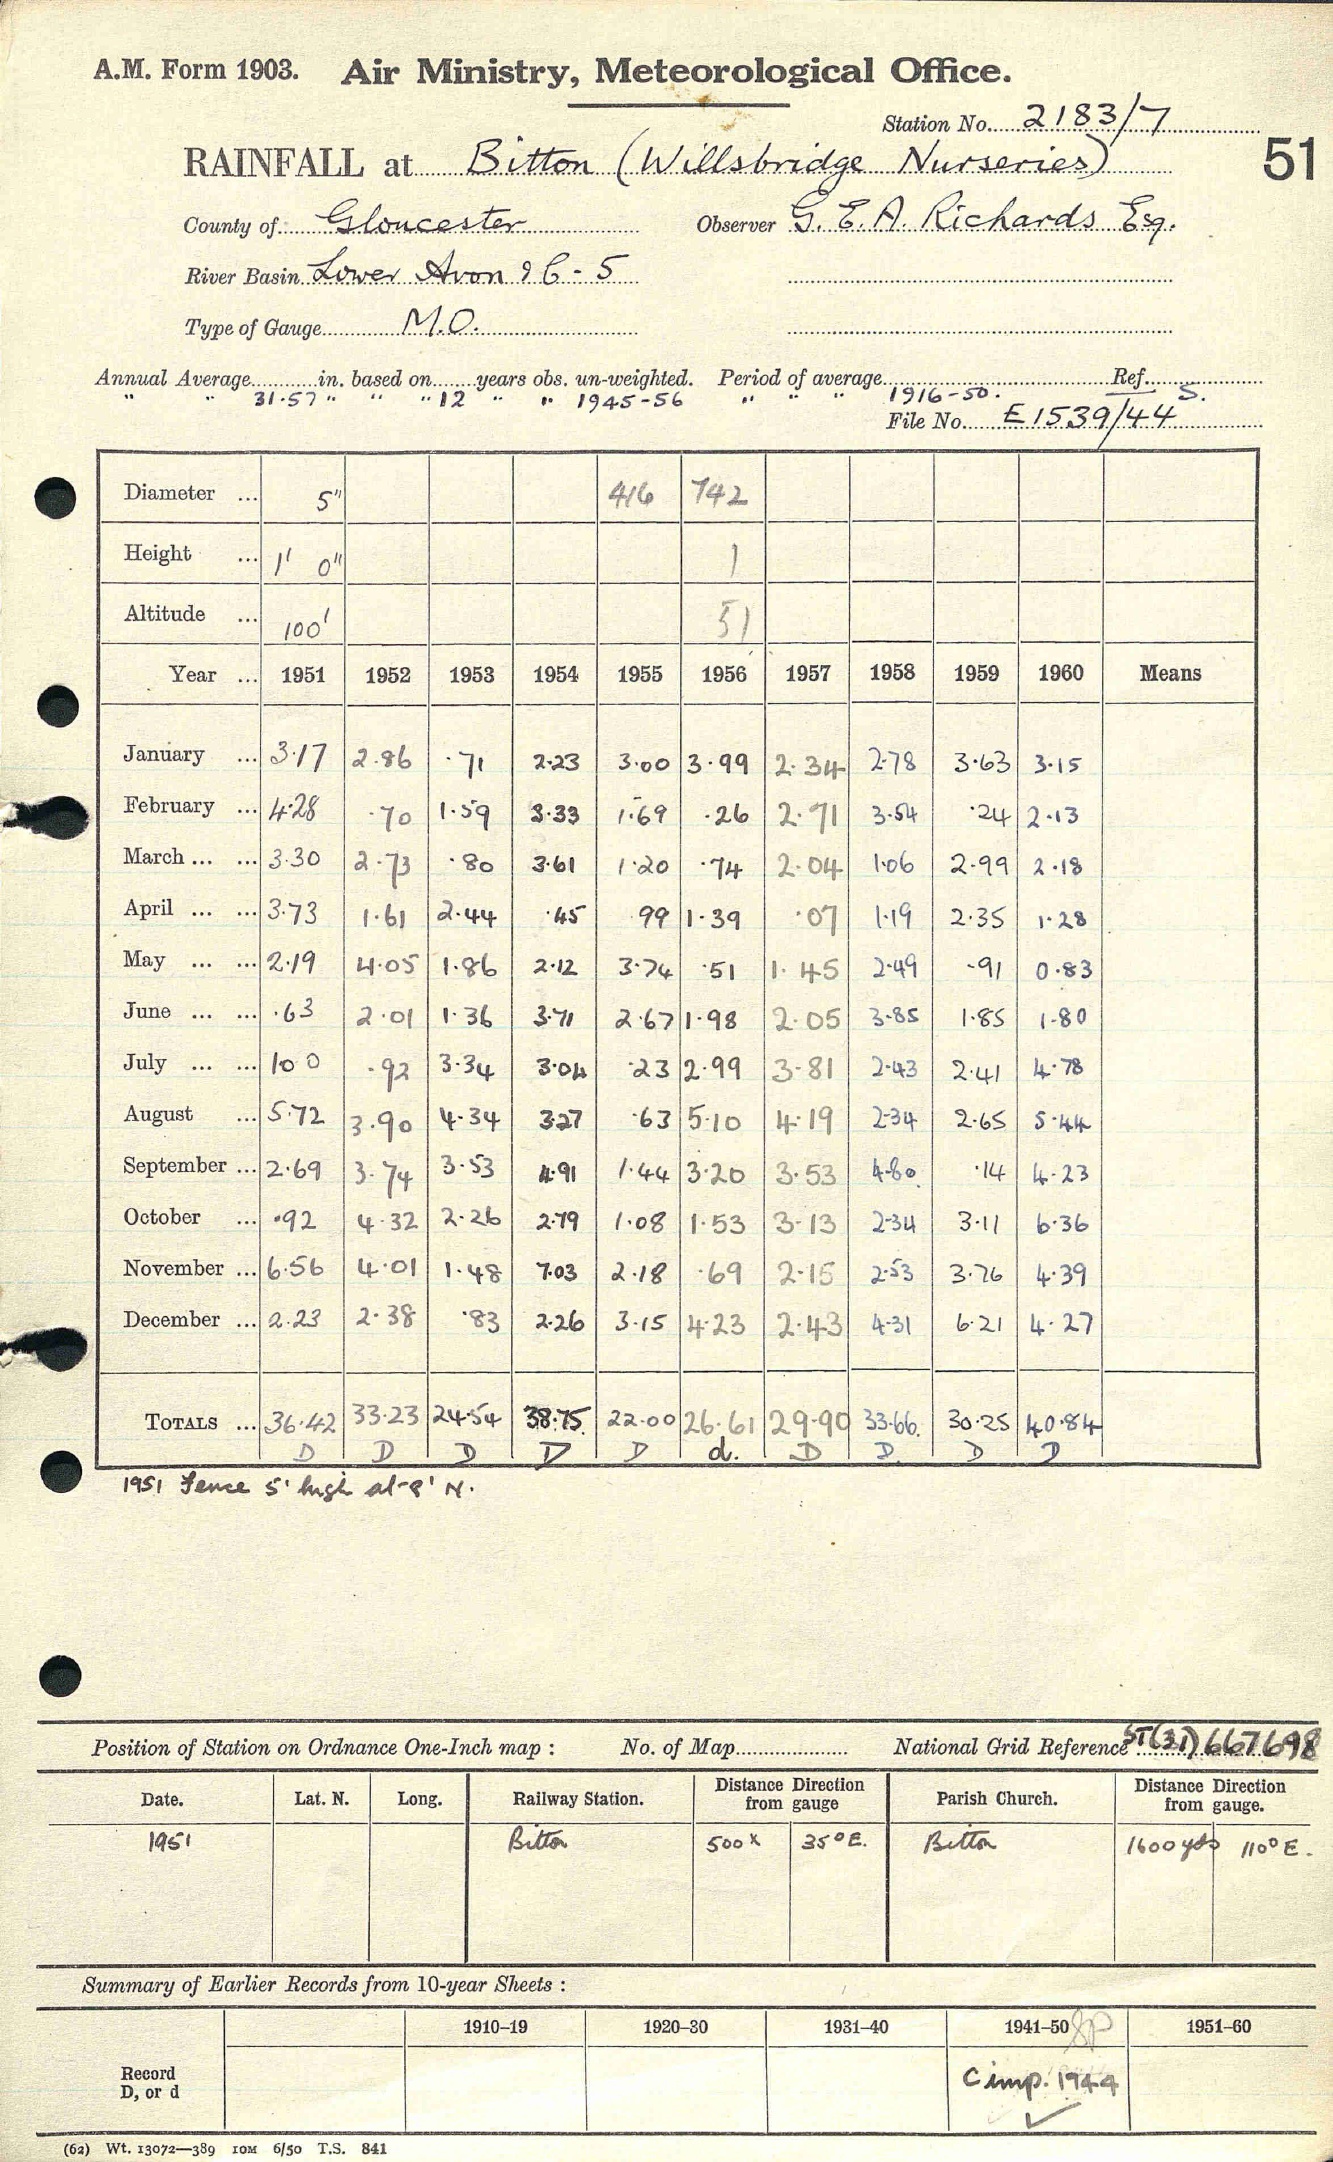 A.M. Form 1903. Air Ministry, Meteorological Office.
Station No. 2183/7
RAINFALL at Bitton (Willsbridge Nurseries) 51
County of Gloucester Observer G. E. A. Richards Esq.
River Basin Lower Avon 96-5
Type of Gauge M.O.
Annual Average in. based on years obs. un-weighted. Period of average Ref.
" " 31.57 " " " 12 " " 1945-56 " " " 1916-50. S.
File No. E1539/44
Diameter ... 5" 416 742
Height ... 1' 0" 1
Altitude ... 100' 51
Year ... 1951 1952 1953 1954 1955 1956 1957 1958 1959 1960 Means
January ... 3.17 2.86 .71 2.23 3.00 3.99 2.34 2.78 3.63 3.15
February ... 4.28 .70 1.59 3.33 1.69 .26 2.71 3.54 .24 2.13
March ... ... 3.30 2.73 .80 3.61 1.20 .74 2.04 1.06 2.99 2.18
April ... ... 3.73 1.61 2.44 .45 .99 1.39 .07 1.19 2.35 1.28
May ... ... 2.19 4.05 1.86 2.12 3.74 .51 1.45 2.49 .91 0.83
June ... ... .63 2.01 1.36 3.71 2.67 1.98 2.05 3.85 1.85 1.80
July ... ... 1.00 .92 3.34 3.04 .23 2.99 3.81 2.43 2.41 4.78
August ... 5.72 3.90 4.34 3.27 .63 5.10 4.19 2.34 2.65 5.44
September ... 2.69 3.74 3.53 4.91 1.44 3.20 3.53 4.80 .14 4.23
October ... .92 4.32 2.26 2.79 1.08 1.53 3.13 2.34 3.11 6.36
November ... 6.56 4.01 1.48 7.03 2.18 .69 2.15 2.53 3.76 4.39
December ... 2.23 2.38 .83 2.26 3.15 4.23 2.43 4.31 6.21 4.27
TOTALS ... 36.42 33.23 24.54 38.75 22.00 26.61 29.90 33.66 30.25 40.84
D D D D D d. D D. D D
1951 Fence 5' high at 8' N.
Position of Station on Ordnance One-Inch map : No. of Map National Grid Reference ST(31) 667698
Date. Lat. N. Long. Railway Station. Distance from Direction gauge Parish Church. Distance from Direction gauge.
1951 Bitton 500x 35° E. Bitton 1600 yds 110° E.
Summary of Earlier Records from 10-year Sheets :
1910–19 1920–30 1931–40 1941–50 1951–60
Record
D, or d
Cimp. 1944
(62) Wt. 13072—389 10M 6/50 T.S. 841